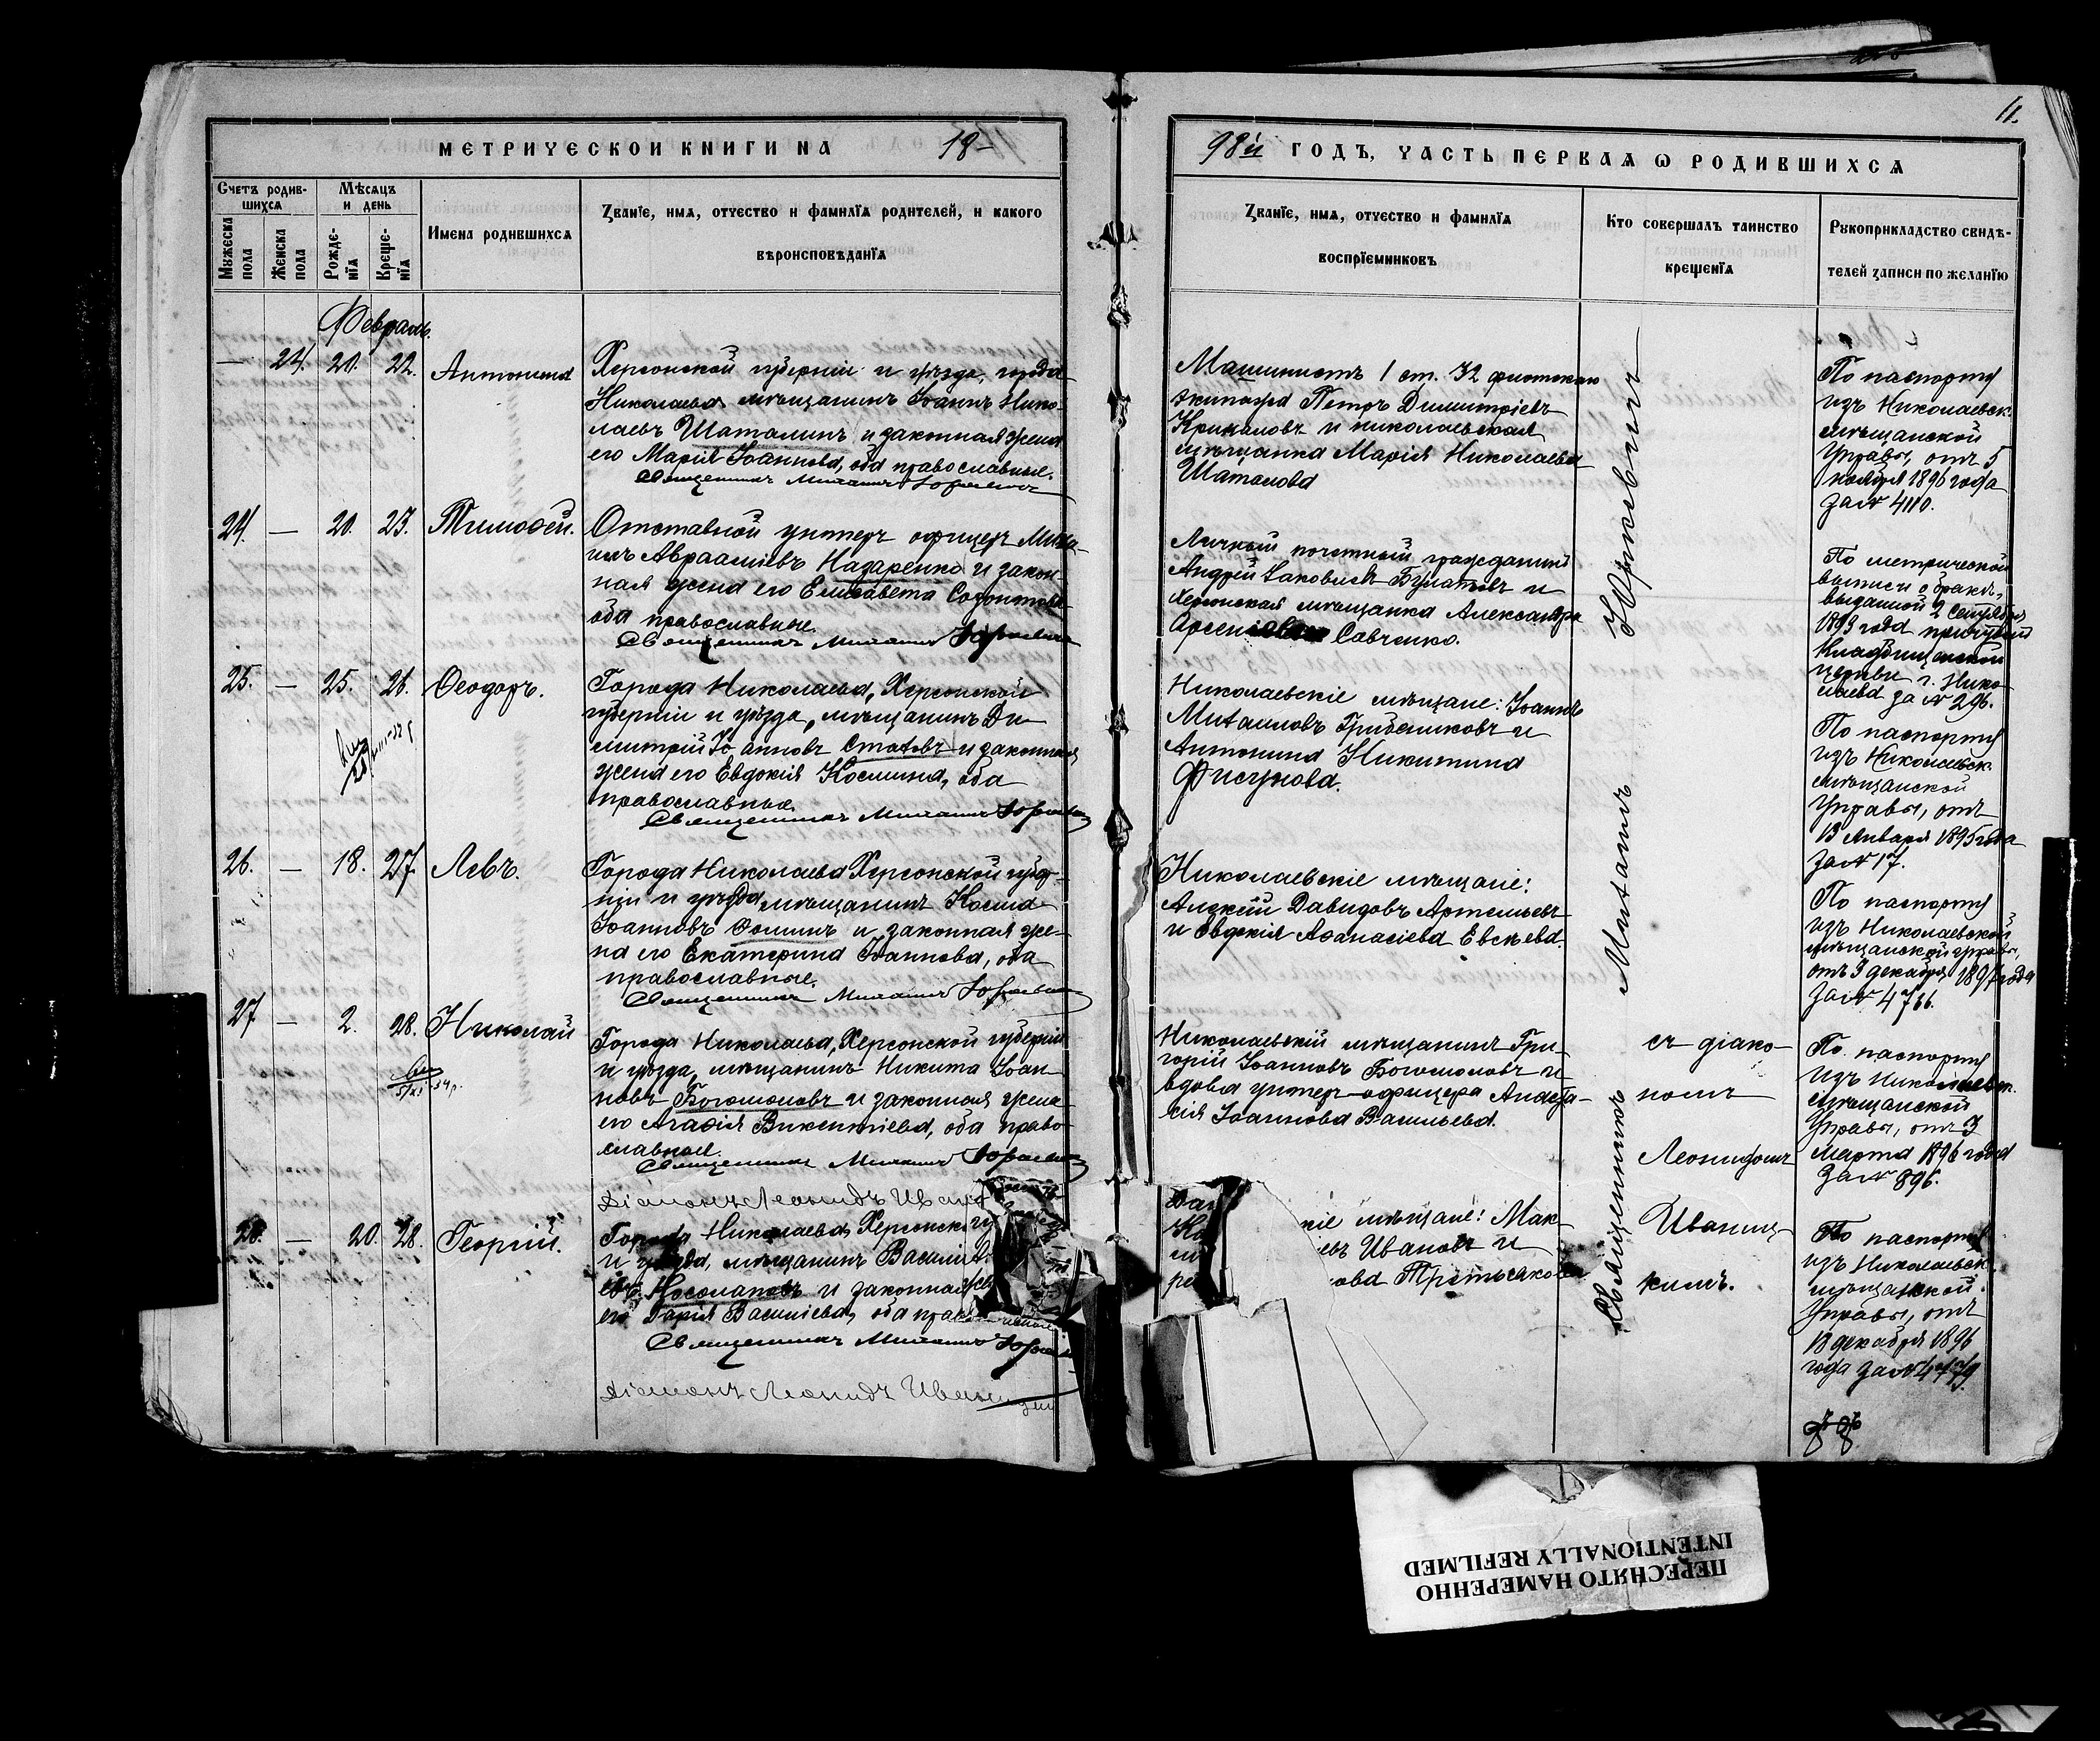 МЕТРИЧЕСКОЙ КНИГИ НА 18-
98й ГОДЪ, ЧАСТЬ ПЕРВАЯ Ѡ РОДИВШИХСЯ
11.
Счетъ родив-
шихся
Мѣсяцъ
и день
Мужеска
пола
Женска
пола
Рожде-
нїя
Креще-
нїя
Имена родившихся
Званїе, имя, отчество и фамилїя родителей, и какого
вѣроисповѣданїя
Званїе, имя, отчество и фамилїя
воспрїемниковъ
Кто совершалъ таинство
крещенїя
Рукоприкладство свидѣ-
телей записи по желанїю
Февраль.
— 24. 20. 22. Антонина
Херсонской губерніи и уѣзда, города
Николаева мѣщанинъ Іоаннъ Нико-
лаевъ Шаталинъ и законная жена
его Марія Іоаннова, оба православные.
Священникъ Михаилъ Юркевичъ
Машинистъ 1 ст. 32 флотскаго
экипажа Петръ Димитріевъ
и николаевская
мѣщанка Марія Николаева
Шаталова
По паспорту
изъ Николаевск.
мѣщанской
Управы, отъ 5
ноября 1896 года
за №4110.
24. — 20. 23. Тимоѳей.
Отставной унтеръ офицеръ Миха-
илъ Авраамiевъ Назаренко и закон-
ная жена его Елисавета
оба православные.
Священникъ Михаилъ Юркевичъ
Личный почетный гражданинъ
Андрей Іаковлевъ Булатовъ и
херсонская мѣщанка Александра
Савченко.
По метрической
выписи о бракѣ,
выданной 2 Сентября
1893 года причтомъ
Кладбищенской
церкви г. Нико-
лаева за №296.
25. — 25. 26. Ѳеодоръ.
Города Николаева, Херсонской
губерніи и уѣзда, мѣщанинъ Ди-
митрій Іоанновъ Статовъ и законная
жена его Евдокія Космина, оба
православные.
Священникъ Михаилъ Юркевичъ
Николаевскіе мѣщане: Іоаннъ
Михаиловъ Грибениковъ и
Антонина Никитина
Фисунова.
По паспорту
изъ Николаевск.
мѣщанской
Управы, отъ
13 Января 1895 года
за №17.
26. — 18. 27. Левъ.
Города Николаева Херсонской губер-
ніи и уѣзда мѣщанинъ Косма
Іоанновъ Ѳоминъ и законная же-
на его Екатерина Іоаннова, оба
православные.
Священникъ Михаилъ Юркевичъ
Николаевскіе мѣщане:
Алексѣй Давидовъ Артемьевъ
и Евдокія Аѳанасіева Евсѣева.
По паспорту
изъ Николаевской
мѣщанской управы,
отъ 9 декабря 1897 года
за № 4736.
27 — 2. 28. Николай
Города Николаева, Херсонской губерніи
и уѣзда, мѣщанинъ Никита Іоан-
новъ Богомоловъ и законная жена
его Агаѳія Викентіева, оба право-
славные.
Священникъ Михаилъ Юркевичъ
Діаконъ Леонидъ
Николаевскій мѣщанинъ Гри-
горій Іоанновъ Богомоловъ и
вдова унтеръ-офицера Анаста-
сія Іоаннова Васильева.
По паспорту
изъ Николаевск.
мѣщанской
Управы, отъ 3
Марта 1896 года
за № 896.
28. — 20. 28. Георгій.
Города Николаева, Херсонской
и уѣзда, мѣщанинъ Василій
Носолаповъ и законная
его Дарія Василіева, оба
Священникъ Михаилъ Юркевичъ
Діаконъ Леонидъ Иваницкій
мѣщане: Мак-
Ивановъ и
Третьякова
По паспорту
изъ Николаевск.
мѣщанской
Управы, отъ
13 декабря 1896
года за №4779.
Священникъ Михаилъ Юркевичъ
съ діако-
номъ
Леонидомъ
Иваниц-
кимъ.
ПЕРЕСНЯТО НАМЕРЕННО
INTENTIONALLY REFILMED